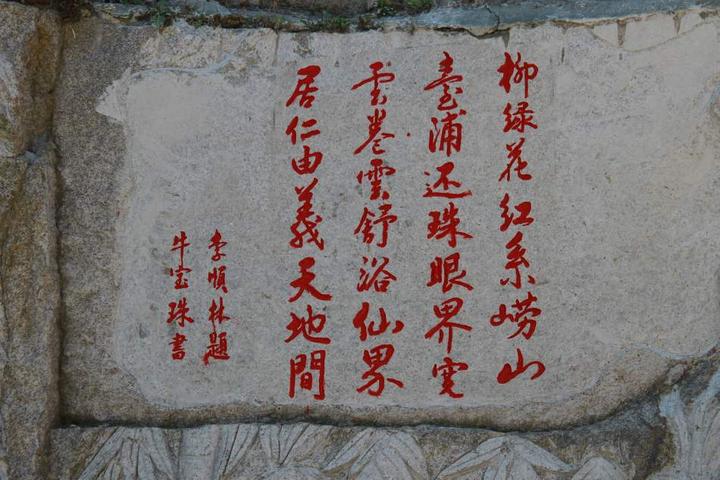 柳绿花红系崂山
臺浦还珠眼界宽
雲卷雲舒浴仙界
居仁由義天地間
李順林題
牛宝珠書